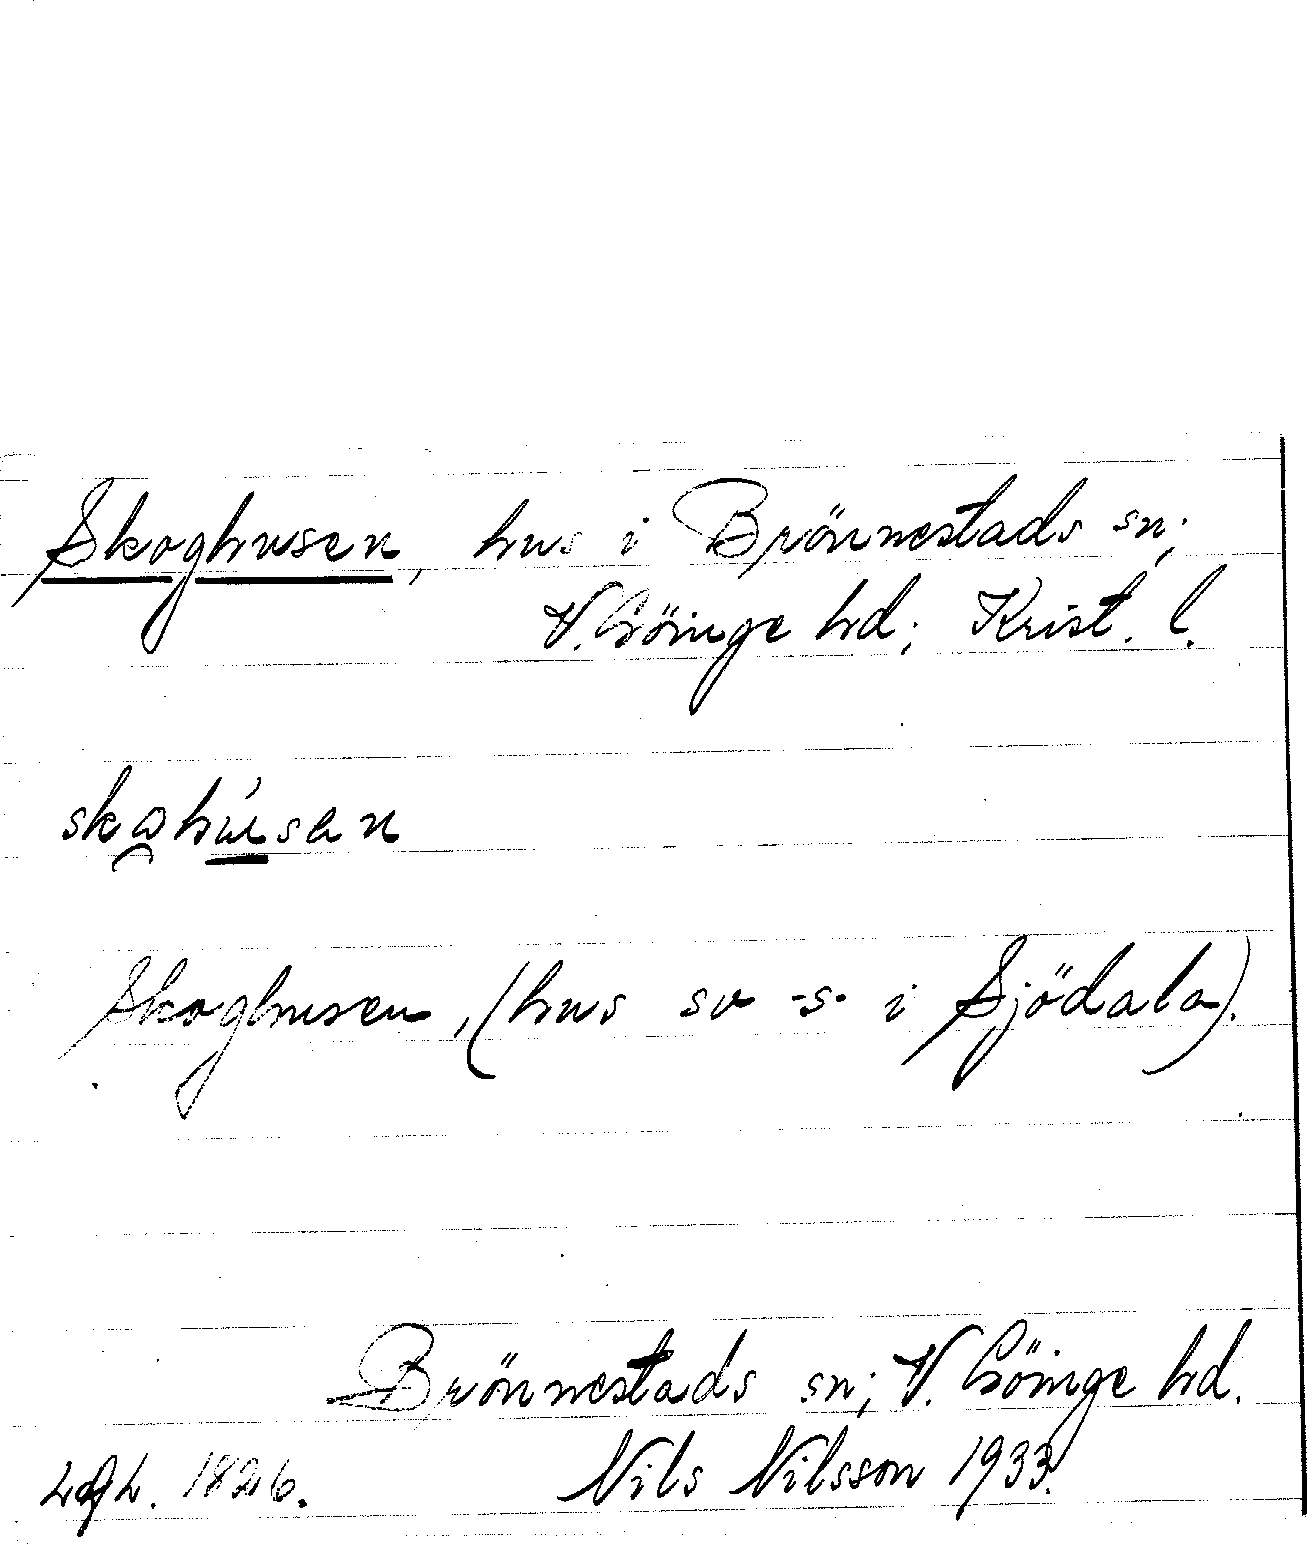 Skoghusen, hus i Brönnestads sn;
V. Göinge hd; Krist. l.
skohúsen
Skoghusen, (hus sv -s- i Sjödala).
Brönnestads sn; V. Göinge hd.
1826. Nils Nilsson 1933.